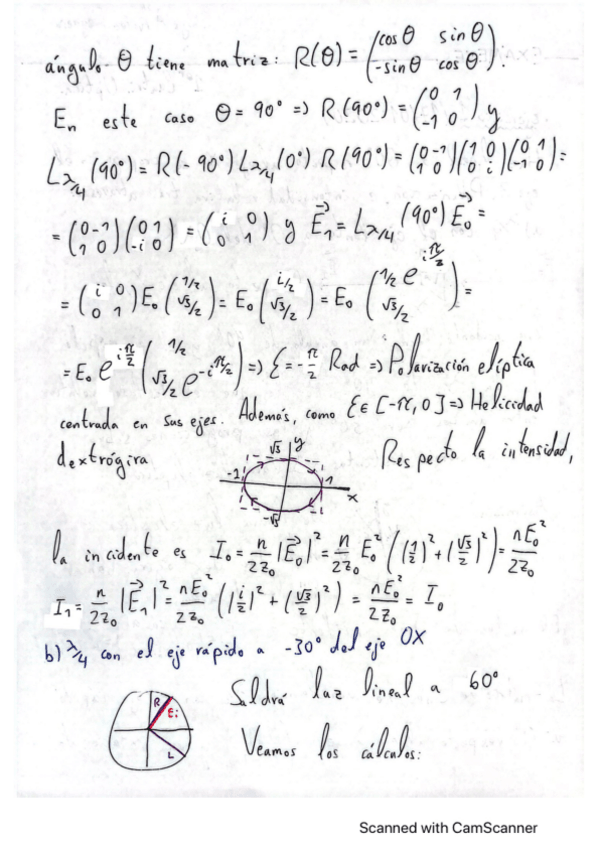 ángulo θ tiene matriz: R(θ) = (cosθ sinθ / -sinθ cosθ).
En este caso θ = 90° => R(90°) = (0 1 / -1 0) y
L_λ/4 (90°) = R(-90°) L_λ/4 (0°) R(90°) = (0 -1 / 1 0)(1 0 / 0 i)(0 1 / -1 0) =
= (0 -1 / 1 0)(0 1 / -i 0) = (i 0 / 0 1) y E⃗₁ = L_λ/4 (90°) E⃗₀ =
= (i 0 / 0 1) E₀ (1/2 / √3/2) = E₀ (i/2 / √3/2) = E₀ (1/2 e^{iπ/2} / √3/2) =
= E₀ e^{iπ/2} (1/2 / √3/2 e^{-iπ/2}) => ξ = -π/2 Rad => Polarización elíptica
centrada en sus ejes. Además, como ξ ∈ [-π, 0] => Helicidad
dextrógira
√3 y
-1 1
x
-√3
Respecto la intensidad,
la incidente es I₀ = n/2z₀ |E⃗₀|² = n/2z₀ E₀² (|1/2|² + |√3/2|²) = nE₀²/2z₀
I₁ = n/2z₀ |E⃗₁|² = nE₀²/2z₀ (|i/2|² + (√3/2)²) = nE₀²/2z₀ = I₀
b) λ/4 con el eje rápido a -30° del eje OX
R
Ei
L
Saldrá luz lineal a 60°
Veamos los cálculos:
Scanned with CamScanner